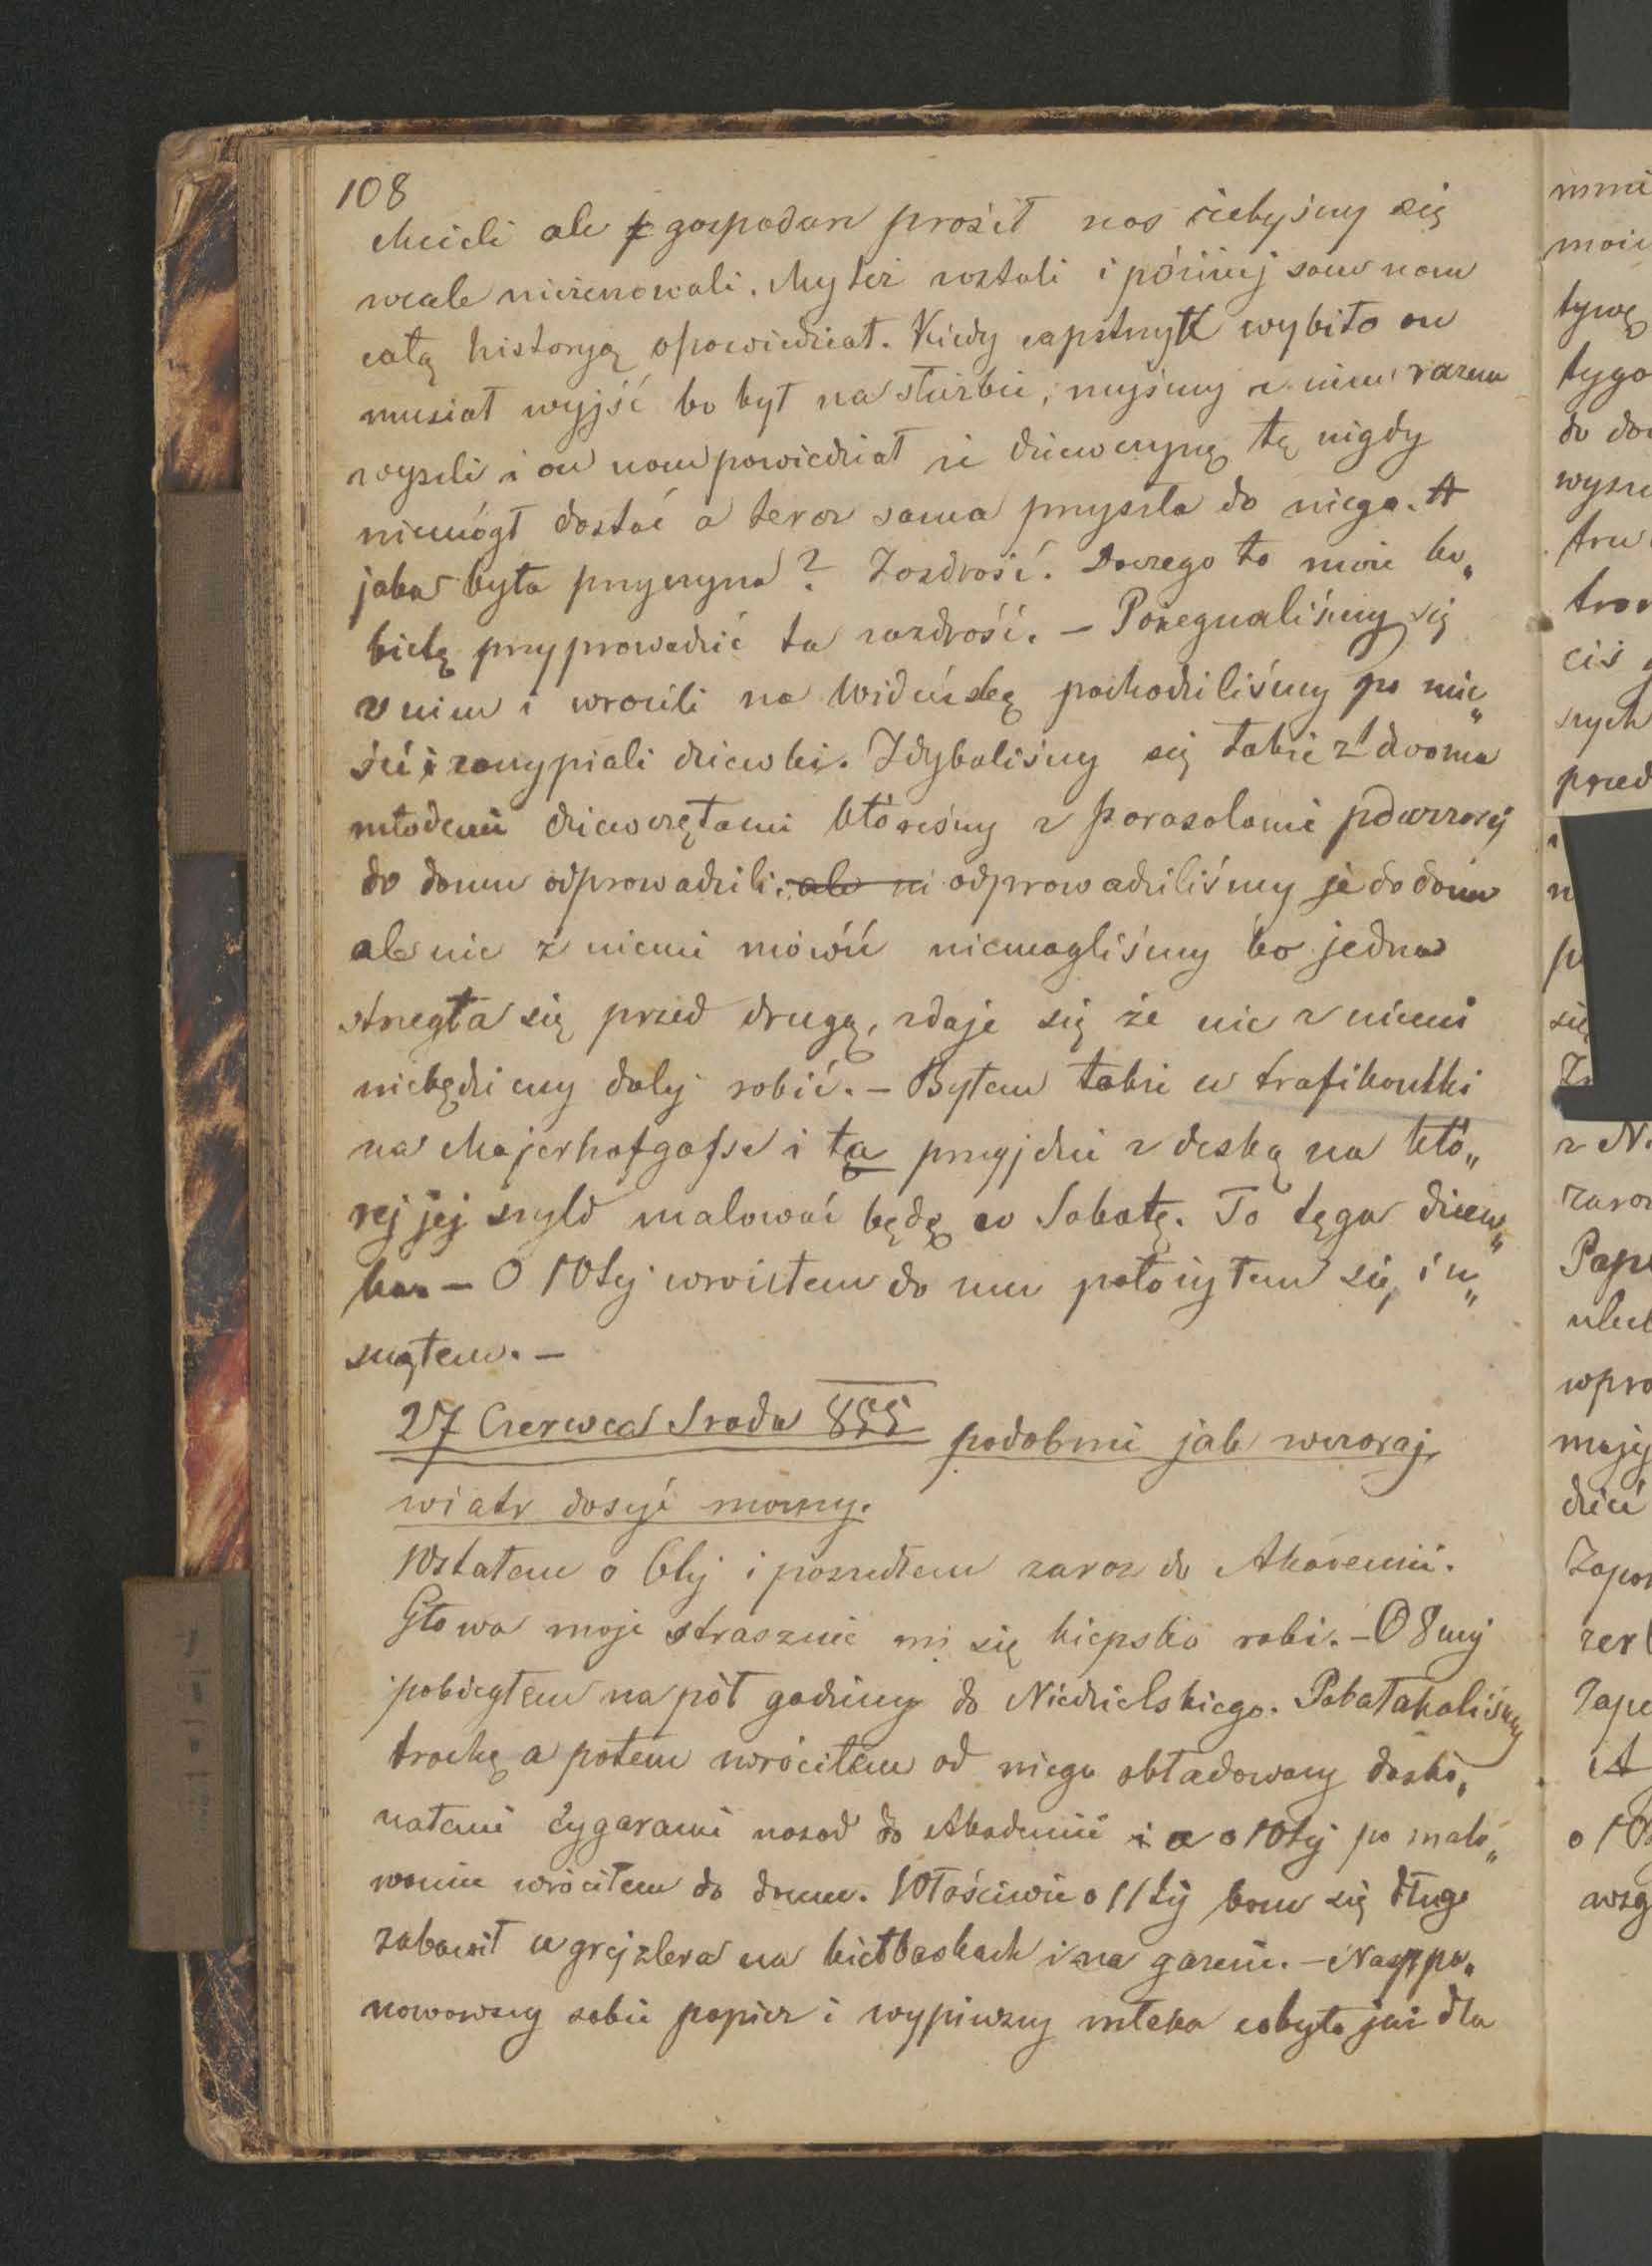 108
chcieli ale gospodarz prosił nas żebyśmy się
wcale nieżenowali. My też zostali i później sam nam
całą historyą opowiedział. Kiedy capstrzyk wybito on
musiał wyjść bo był na służbie, myśmy z nim razem
wyszli i on nam powiedział że dziewczynę tę nigdy
niemógł dostać a teraz sama przyszła do niego. A
jaka była przyczyna? Zazdrość. Do czego to może ko„
bietę przyprowadzić ta zazdrość. – Pożegnaliśmy się
z nim i wrócili na Wideńską pochodziliśmy po mie„
ście i zaczypiali dziewki. Zdybaliśmy się także z dwoma
młodemi dziewczętami któreśmy z parasolami
do domu odprowadzili, ale ni odprowadziliśmy je do domu
ale nic z niemi mówić niemogliśmy bo jedna
strzegła się przed drugą, zdaje się że nic z niemi
niebędziemy dalej robić. – Byłem także u trafikantki
na Majerhofgasse i ta przyjdzie z deską na któ„
rej jej szyld malować będę w Sobotę. To tęga dziew„
ka. – O 10tej wróciłem do mu położyłem się, i u„
snąłem. –
27 Czerwca Sroda 855 podobnie jak wczoraj,
wiatr dosyć mocny.
Wstałem o 6tej i poszedłem zaraz do Akademii.
Głowa moja strasznie mi się kiepsko robi. – O 8mej
pobiegłem na pół godziny do Niedzielskiego. Pobałakaliśmy
trochę a potem wróciłem od niego obładowany dosko„
nałemi cygarami nazad do Akademii i a o 10tej po malo„
waniu wróciłem do domu. Właściwie o 11tej bom się długo
zabawił u grejzlera na kiełbaskach i na gazecie. –
nowawszy sobie papier i wypiwszy mleka co było już dla